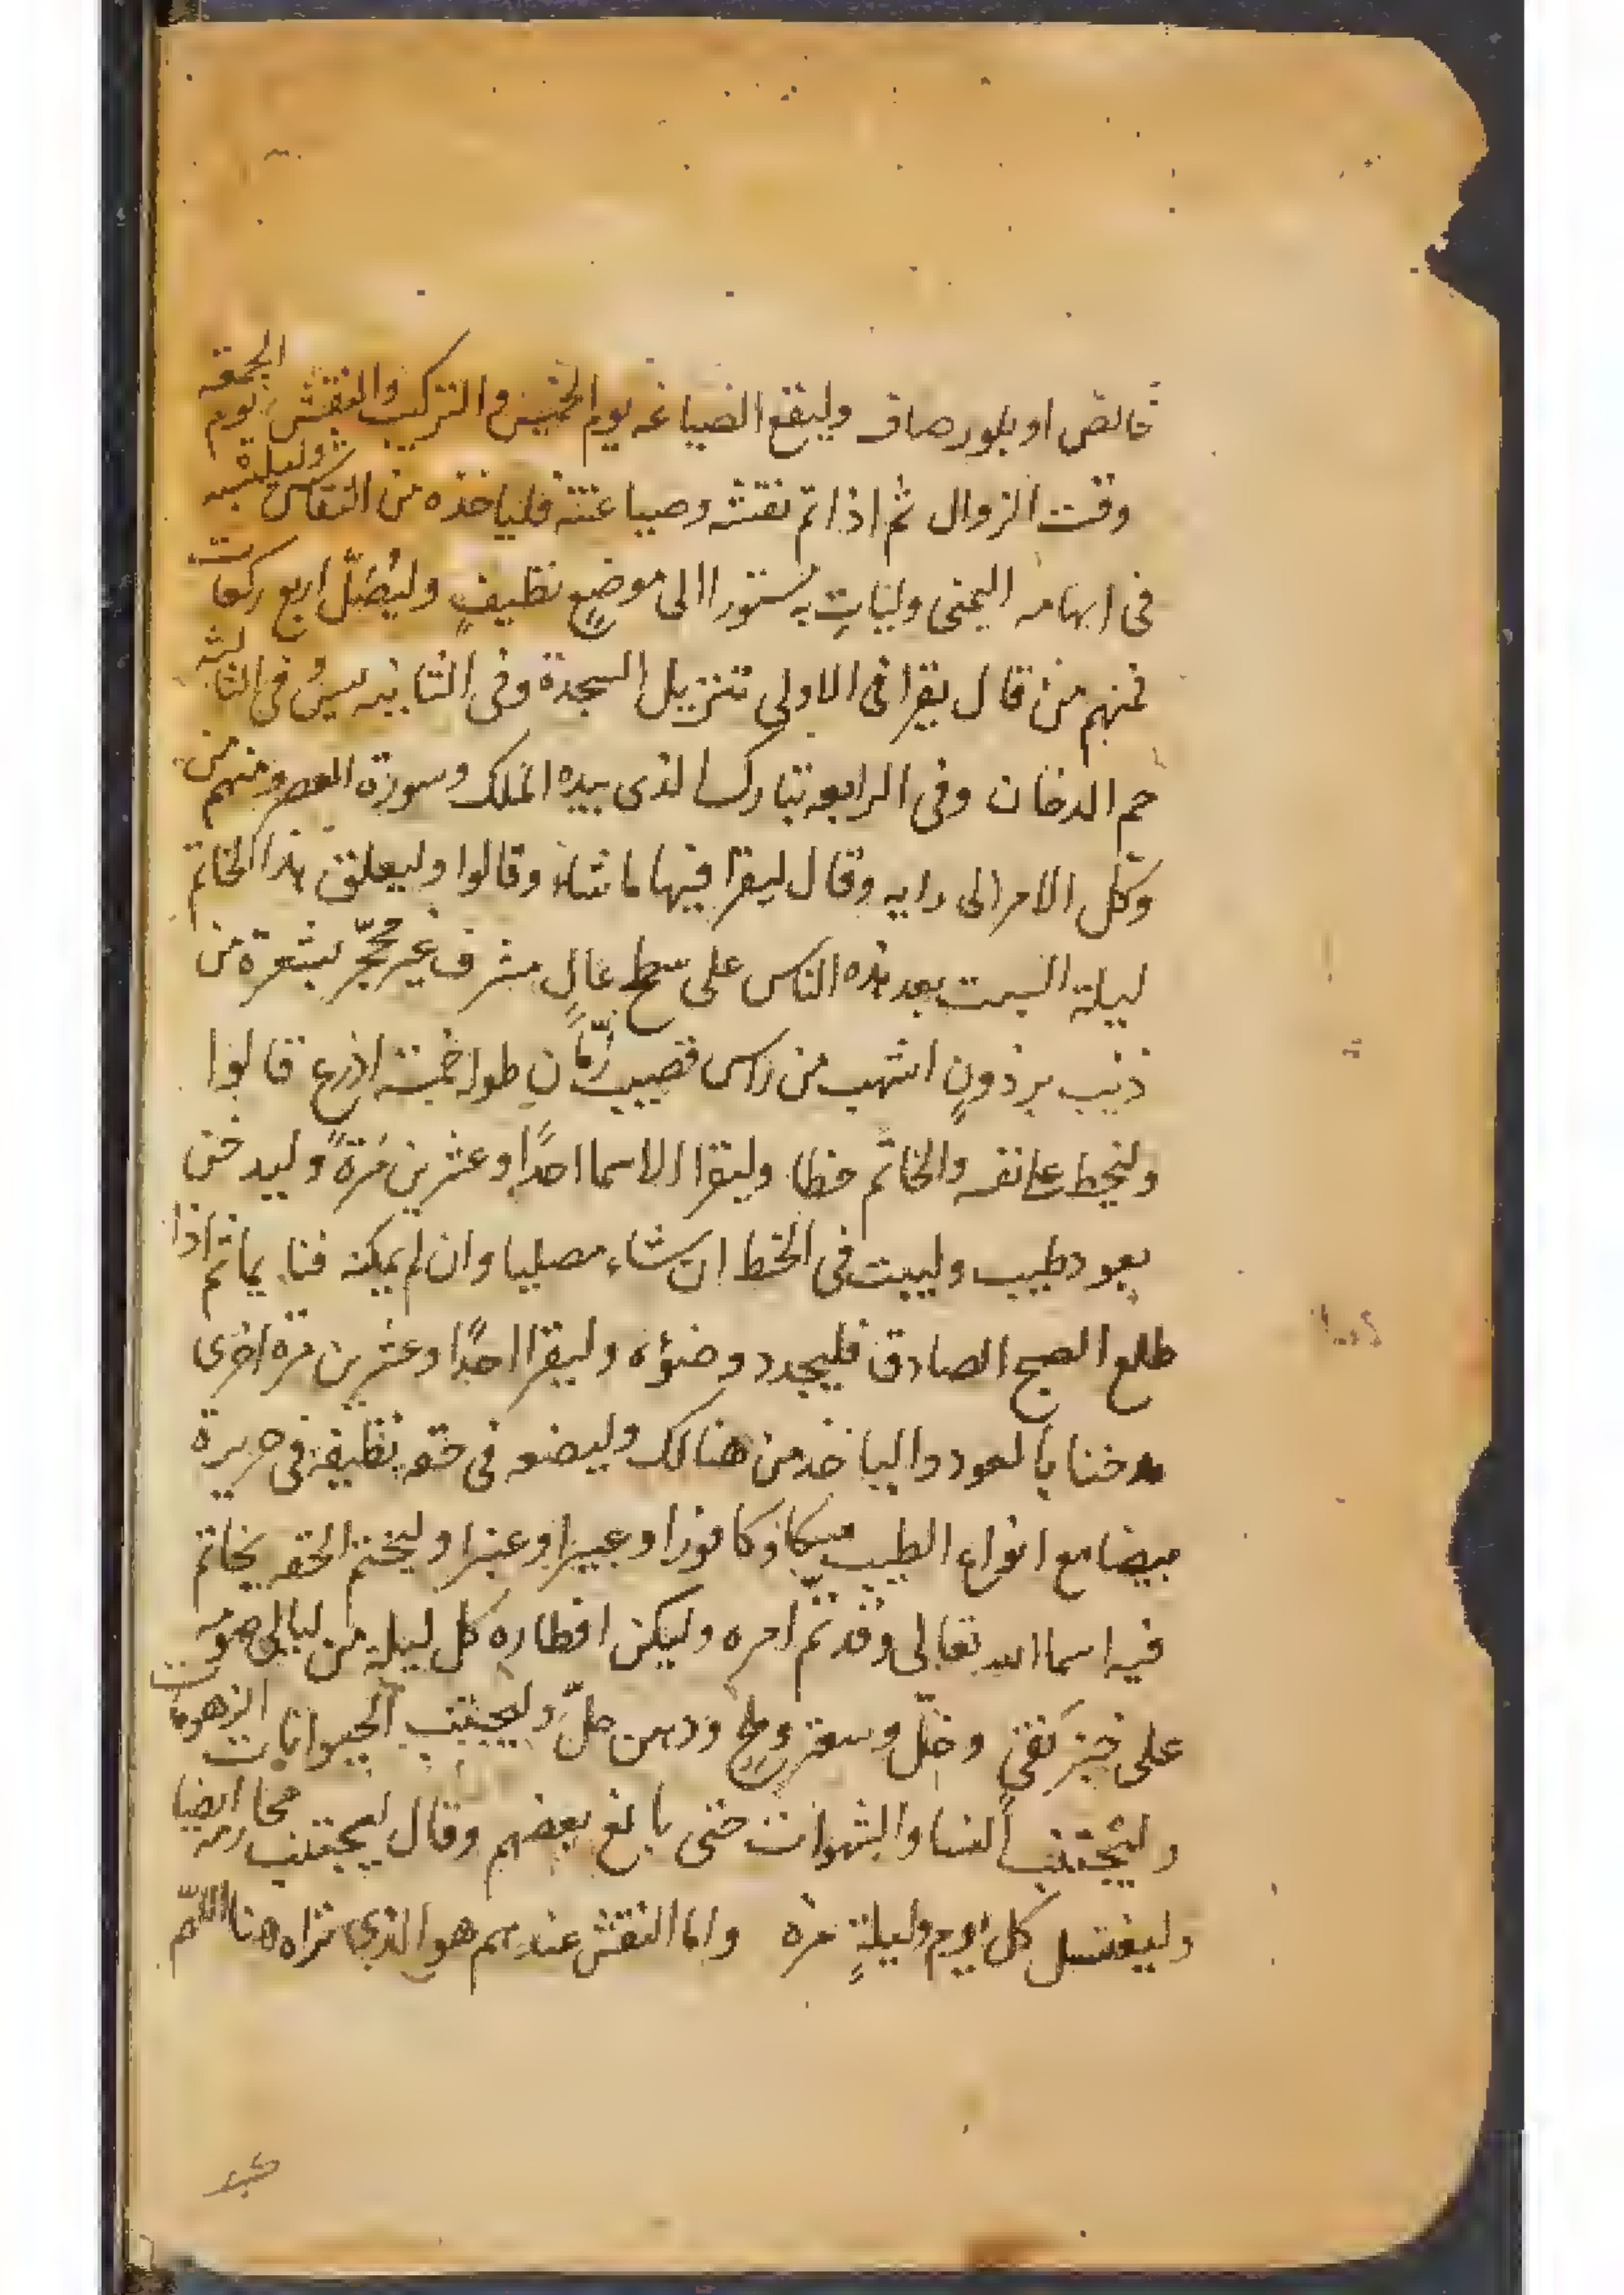 خالص او بلور صاف وليقع الصياغه يوم الخميس والتركيب والنقش يوم الجمعه
وقت الزوال ثم اذا تم نقشه وصياغته فلياخذه من النقاش وليلبسه
فى ابهامه اليمنى وليات به مستورا الى موضع نظيفٍ وليُصَلّ اربع ركعات
فمنهم من قال يقرا فى الاولى تنزيل السجدة وفى الثانيه يس وفى الثالثه
حم الدخان وفى الرابعه تبارك الذى بيده الملك وسورة العصر ومنهم من
وكّل الامر الى رايه وقال ليقرا فيها ما شاء وقالوا وليعلق هذا الخاتم
ليلة السبت بعد هذه الناس على سطح عالٍ مشرف غير محجّر بشعرة من
ذنب برذونٍ اشهب من راس قضيب رمّان طوله خمسة اذرع قالوا
وليخط على نفسه والخاتم خطا وليقرا الاسما احدًا وعشرين مرةً وليدخن
بعود طيب وليبت فى الخط ان شاء مصليا وان لم يمكنه فنايما ثم اذا
طلع الصبح الصادق فليجدد وضؤه وليقرا احدًا وعشرين مرة اخرى
مدخنا بالعود والياخذ من هنالك وليضعه فى حقه نظيفه فى حريرة
بيضا مع انواع الطيب مسكا وكافورا وعبيرا وعنبرا وليختم الحقه بخاتم
فيه اسما الله تعالى وقد تمّ امره وليكن افطاره كل ليلة من ليالى صومه
على خبز نقىٍ وخلّ وسعتر وملح ودهن حلّ وليجتنب الحيوانات الزهومات
وليجتنب النسا والشهوات حتى بالغ بعضهم وقال ليجتنب محارمه ايضا
وليغتسل كل يوم وليلةٍ مره واما النقش عندهم هو الذى تراه هنا اللّهم